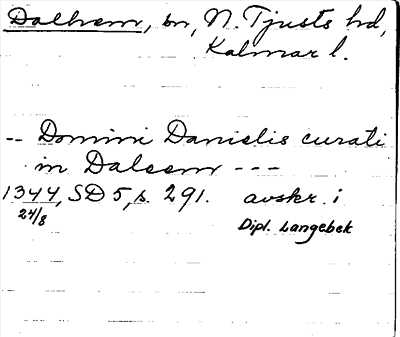 Dalhem, sn, N. Tjusts hd,
Kalmar l.
-- Domini Danielis curati
in Daleem ---
1344, SD 5, s. 291. avskr. i
24/8 Dipl. Langebek